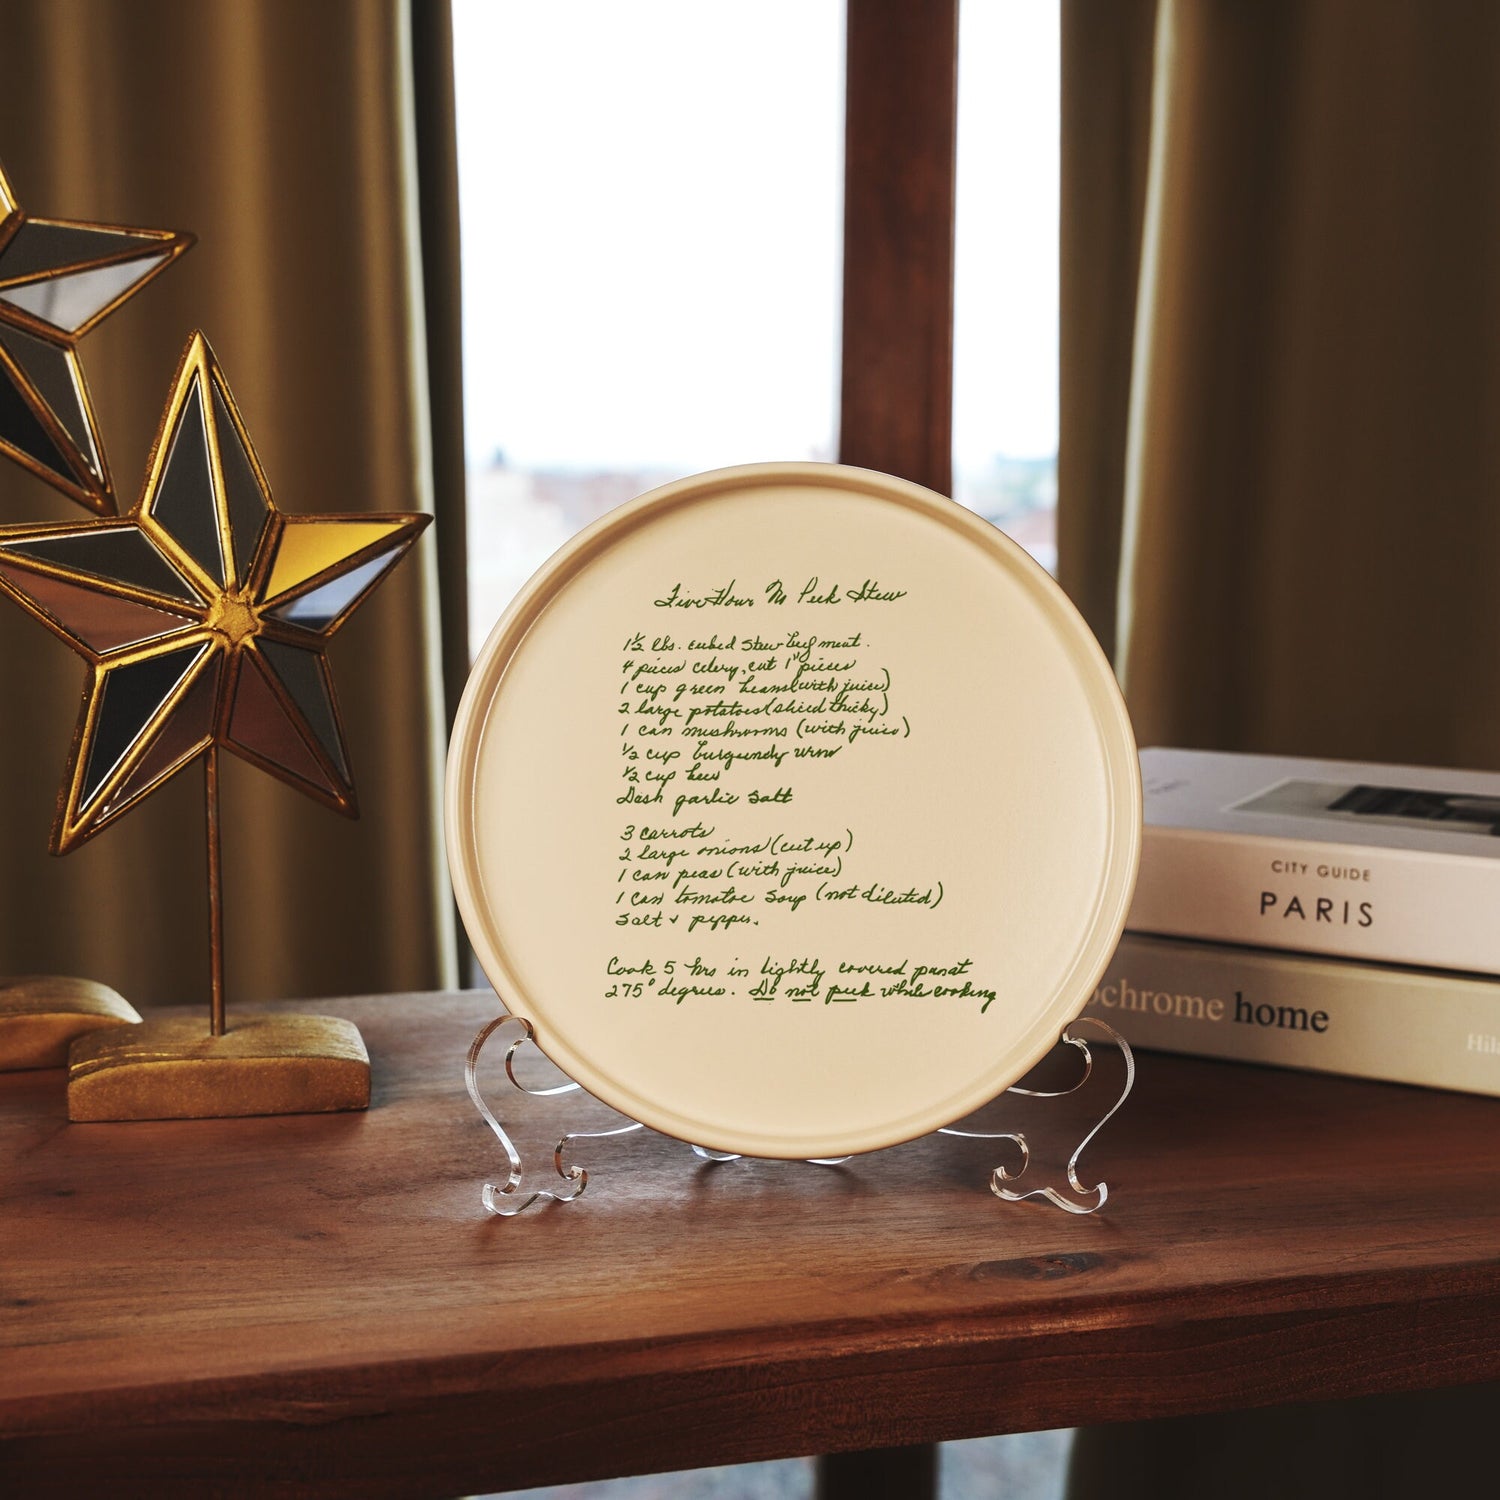 Five Hour No Peek Stew
1½ lbs. cubed stew beef meat.
4 pieces celery, cut 1" pieces
1 cup green beans (with juice)
2 large potatoes (sliced thickly)
1 can mushrooms (with juice)
½ cup burgundy wine
½ cup
Dash garlic salt
3 carrots
2 large onions (cut up)
1 can peas (with juice)
1 can tomatoe soup (not diluted)
Salt & pepper.
Cook 5 hrs in tightly covered pan at
275° degrees. Do not peek while cooking
CITY GUIDE
PARIS
ochrome home
Hil